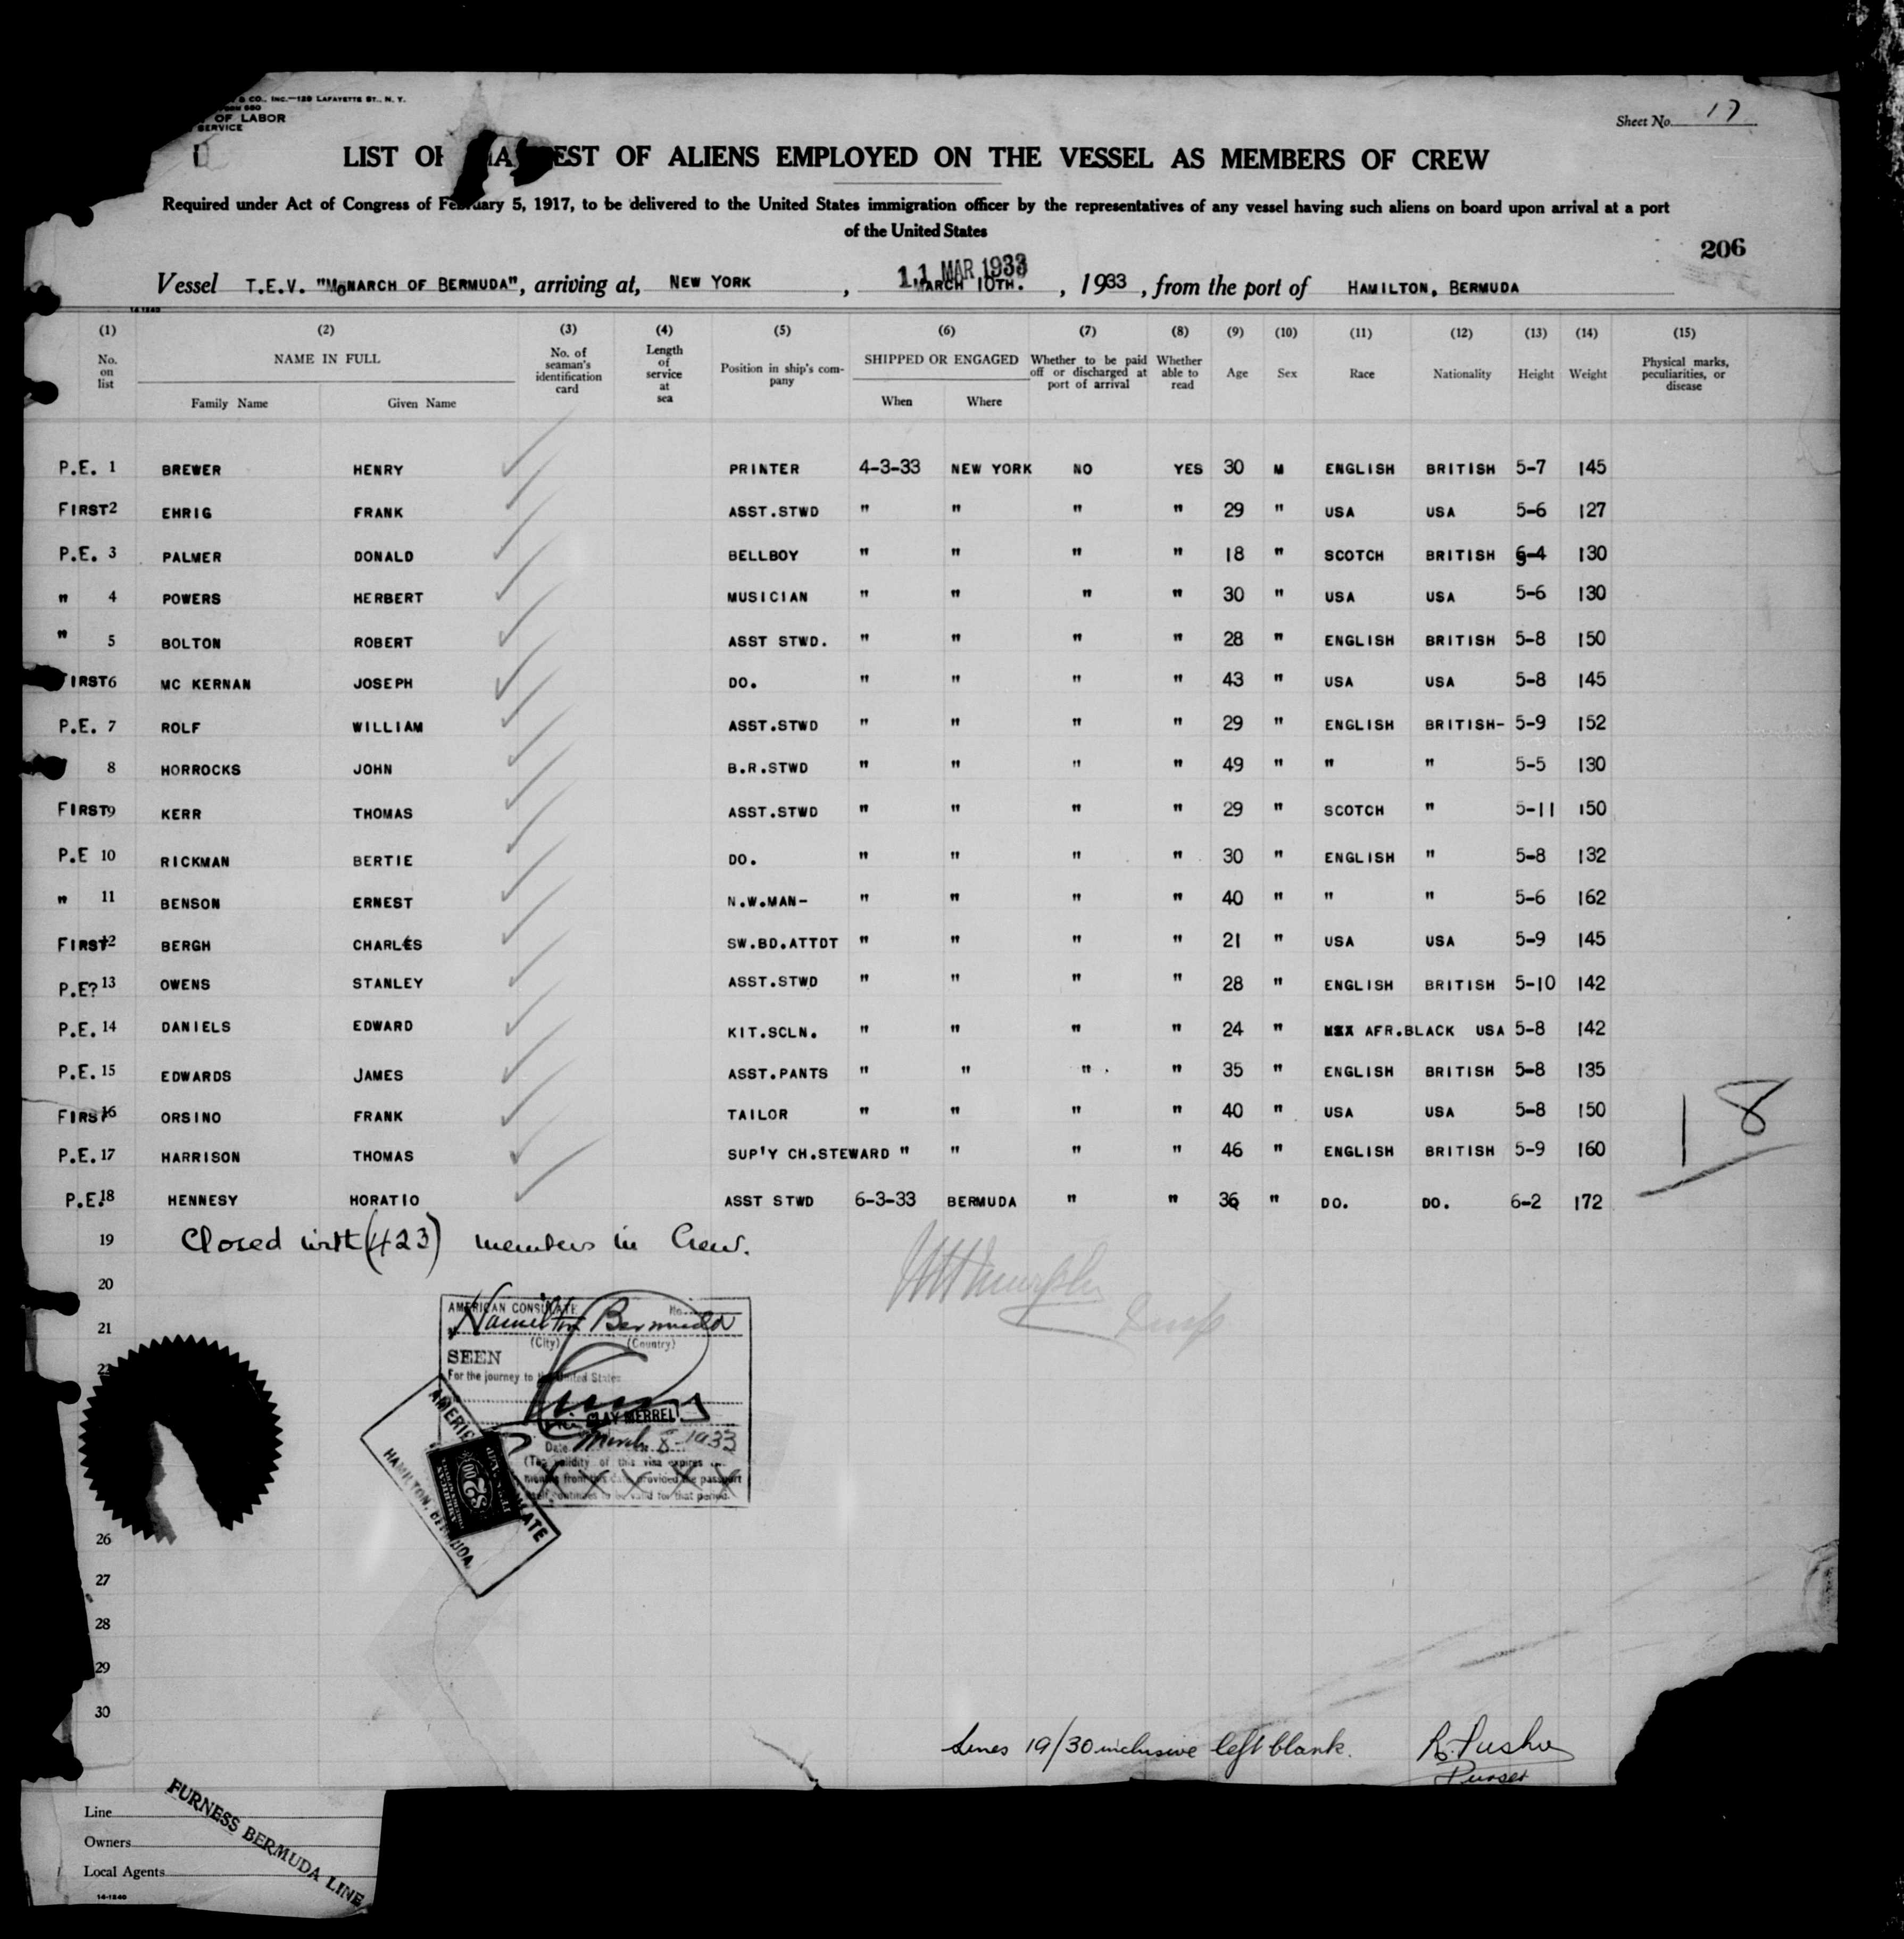 & CO., INC.—129 LAFAYETTE ST., N. Y.
OF LABOR
SERVICE
Sheet No. 17
LIST OR MANIFEST OF ALIENS EMPLOYED ON THE VESSEL AS MEMBERS OF CREW
Required under Act of Congress of February 5, 1917, to be delivered to the United States immigration officer by the representatives of any vessel having such aliens on board upon arrival at a port
of the United States
206
11 MAR 1933
Vessel T.E.V. "MONARCH OF BERMUDA", arriving at, NEW YORK , MARCH 10TH. , 1933, from the port of HAMILTON, BERMUDA
14-1240
(1) (2) (3) (4) (5) (6) (7) (8) (9) (10) (11) (12) (13) (14) (15)
No. on list NAME IN FULL Family Name Given Name No. of seaman's identification card Length of service at sea Position in ship's company SHIPPED OR ENGAGED When Where Whether to be paid off or discharged at port of arrival Whether able to read Age Sex Race Nationality Height Weight Physical marks, peculiarities, or disease
P.E. 1 BREWER HENRY PRINTER 4-3-33 NEW YORK NO YES 30 M ENGLISH BRITISH 5-7 145
FIRST 2 EHRIG FRANK ASST.STWD " " " " 29 " USA USA 5-6 127
P.E. 3 PALMER DONALD BELLBOY " " " " 18 " SCOTCH BRITISH 5-4 130
" 4 POWERS HERBERT MUSICIAN " " " " 30 " USA USA 5-6 130
" 5 BOLTON ROBERT ASST STWD. " " " " 28 " ENGLISH BRITISH 5-8 150
IRST 6 MC KERNAN JOSEPH DO. " " " " 43 " USA USA 5-8 145
P.E. 7 ROLF WILLIAM ASST.STWD " " " " 29 " ENGLISH BRITISH- 5-9 152
8 HORROCKS JOHN B.R.STWD " " " " 49 " " " 5-5 130
FIRST 9 KERR THOMAS ASST.STWD " " " " 29 " SCOTCH " 5-11 150
P.E 10 RICKMAN BERTIE DO. " " " " 30 " ENGLISH " 5-8 132
" 11 BENSON ERNEST N.W.MAN- " " " " 40 " " " 5-6 162
FIRST 12 BERGH CHARLES SW.BD.ATTDT " " " " 21 " USA USA 5-9 145
P.E? 13 OWENS STANLEY ASST.STWD " " " " 28 " ENGLISH BRITISH 5-10 142
P.E. 14 DANIELS EDWARD KIT.SCLN. " " " " 24 " AFR.BLACK USA 5-8 142
P.E. 15 EDWARDS JAMES ASST.PANTS " " " " 35 " ENGLISH BRITISH 5-8 135
FIRST 16 ORSINO FRANK TAILOR " " " " 40 " USA USA 5-8 150
P.E. 17 HARRISON THOMAS SUP'Y CH.STEWARD " " " " 46 " ENGLISH BRITISH 5-9 160
P.E. 18 HENNESY HORATIO ASST STWD 6-3-33 BERMUDA " " 36 " DO. DO. 6-2 172
18
19 Closed with (423) members in Crew.
20
21
22
26
27
28
29
30
AMERICAN CONSULATE No.
Hamilton Bermuda
(City) (Country)
SEEN
For the journey to the United States
CLAY MERRELL
Date March 8-1933
(The validity of this visa expires
months from this date provided the passport
itself continues to be valid for that period.
AMERICAN CONSULATE
HAMILTON, BERMUDA
$2.00
Lines 19/30 inclusive left blank.
Purser
Line
Owners
Local Agents
FURNESS BERMUDA LINE
14-1240